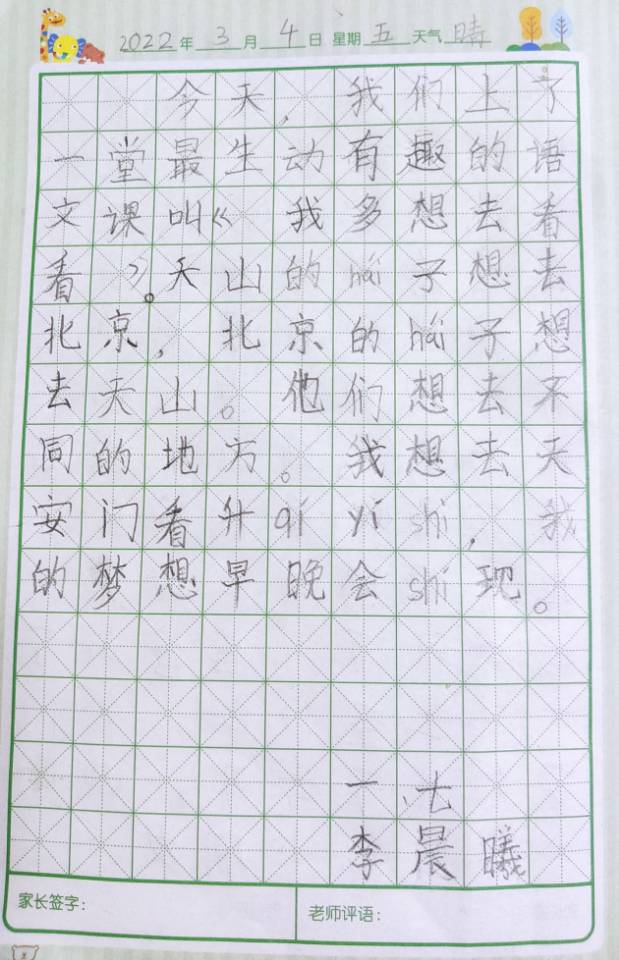 2022年3月4日 星期五 天气晴
今天，我们上了
一堂最生动有趣的语
文课叫《我多想去看
看》。天山的hái子想去
北京，北京的hái子想
去天山。他们想去不
同的地方。我想去天
安门看升qí yí shì，我
的梦想早晚会shí现。
一、七
李晨曦
家长签字：
老师评语：